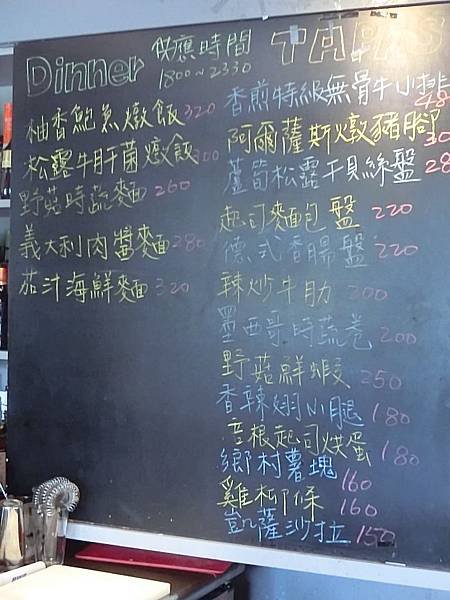 Dinner 供應時間
1800~2330
柚香鮑魚燉飯 320
松露牛肝菌燉飯 300
野菇時蔬麵 260
義大利肉醬麵 280
茄汁海鮮麵 320
TAPAS
香煎特級無骨牛小排
阿爾薩斯燉豬腳
蘆筍松露干貝絲盤
起司麵包盤 220
德式香腸盤 220
辣炒牛肋 200
墨西哥時蔬卷 200
野菇鮮蝦 250
香辣翅小腿 180
培根起司烘蛋 180
鄉村薯塊 160
雞柳條 160
凱薩沙拉 150